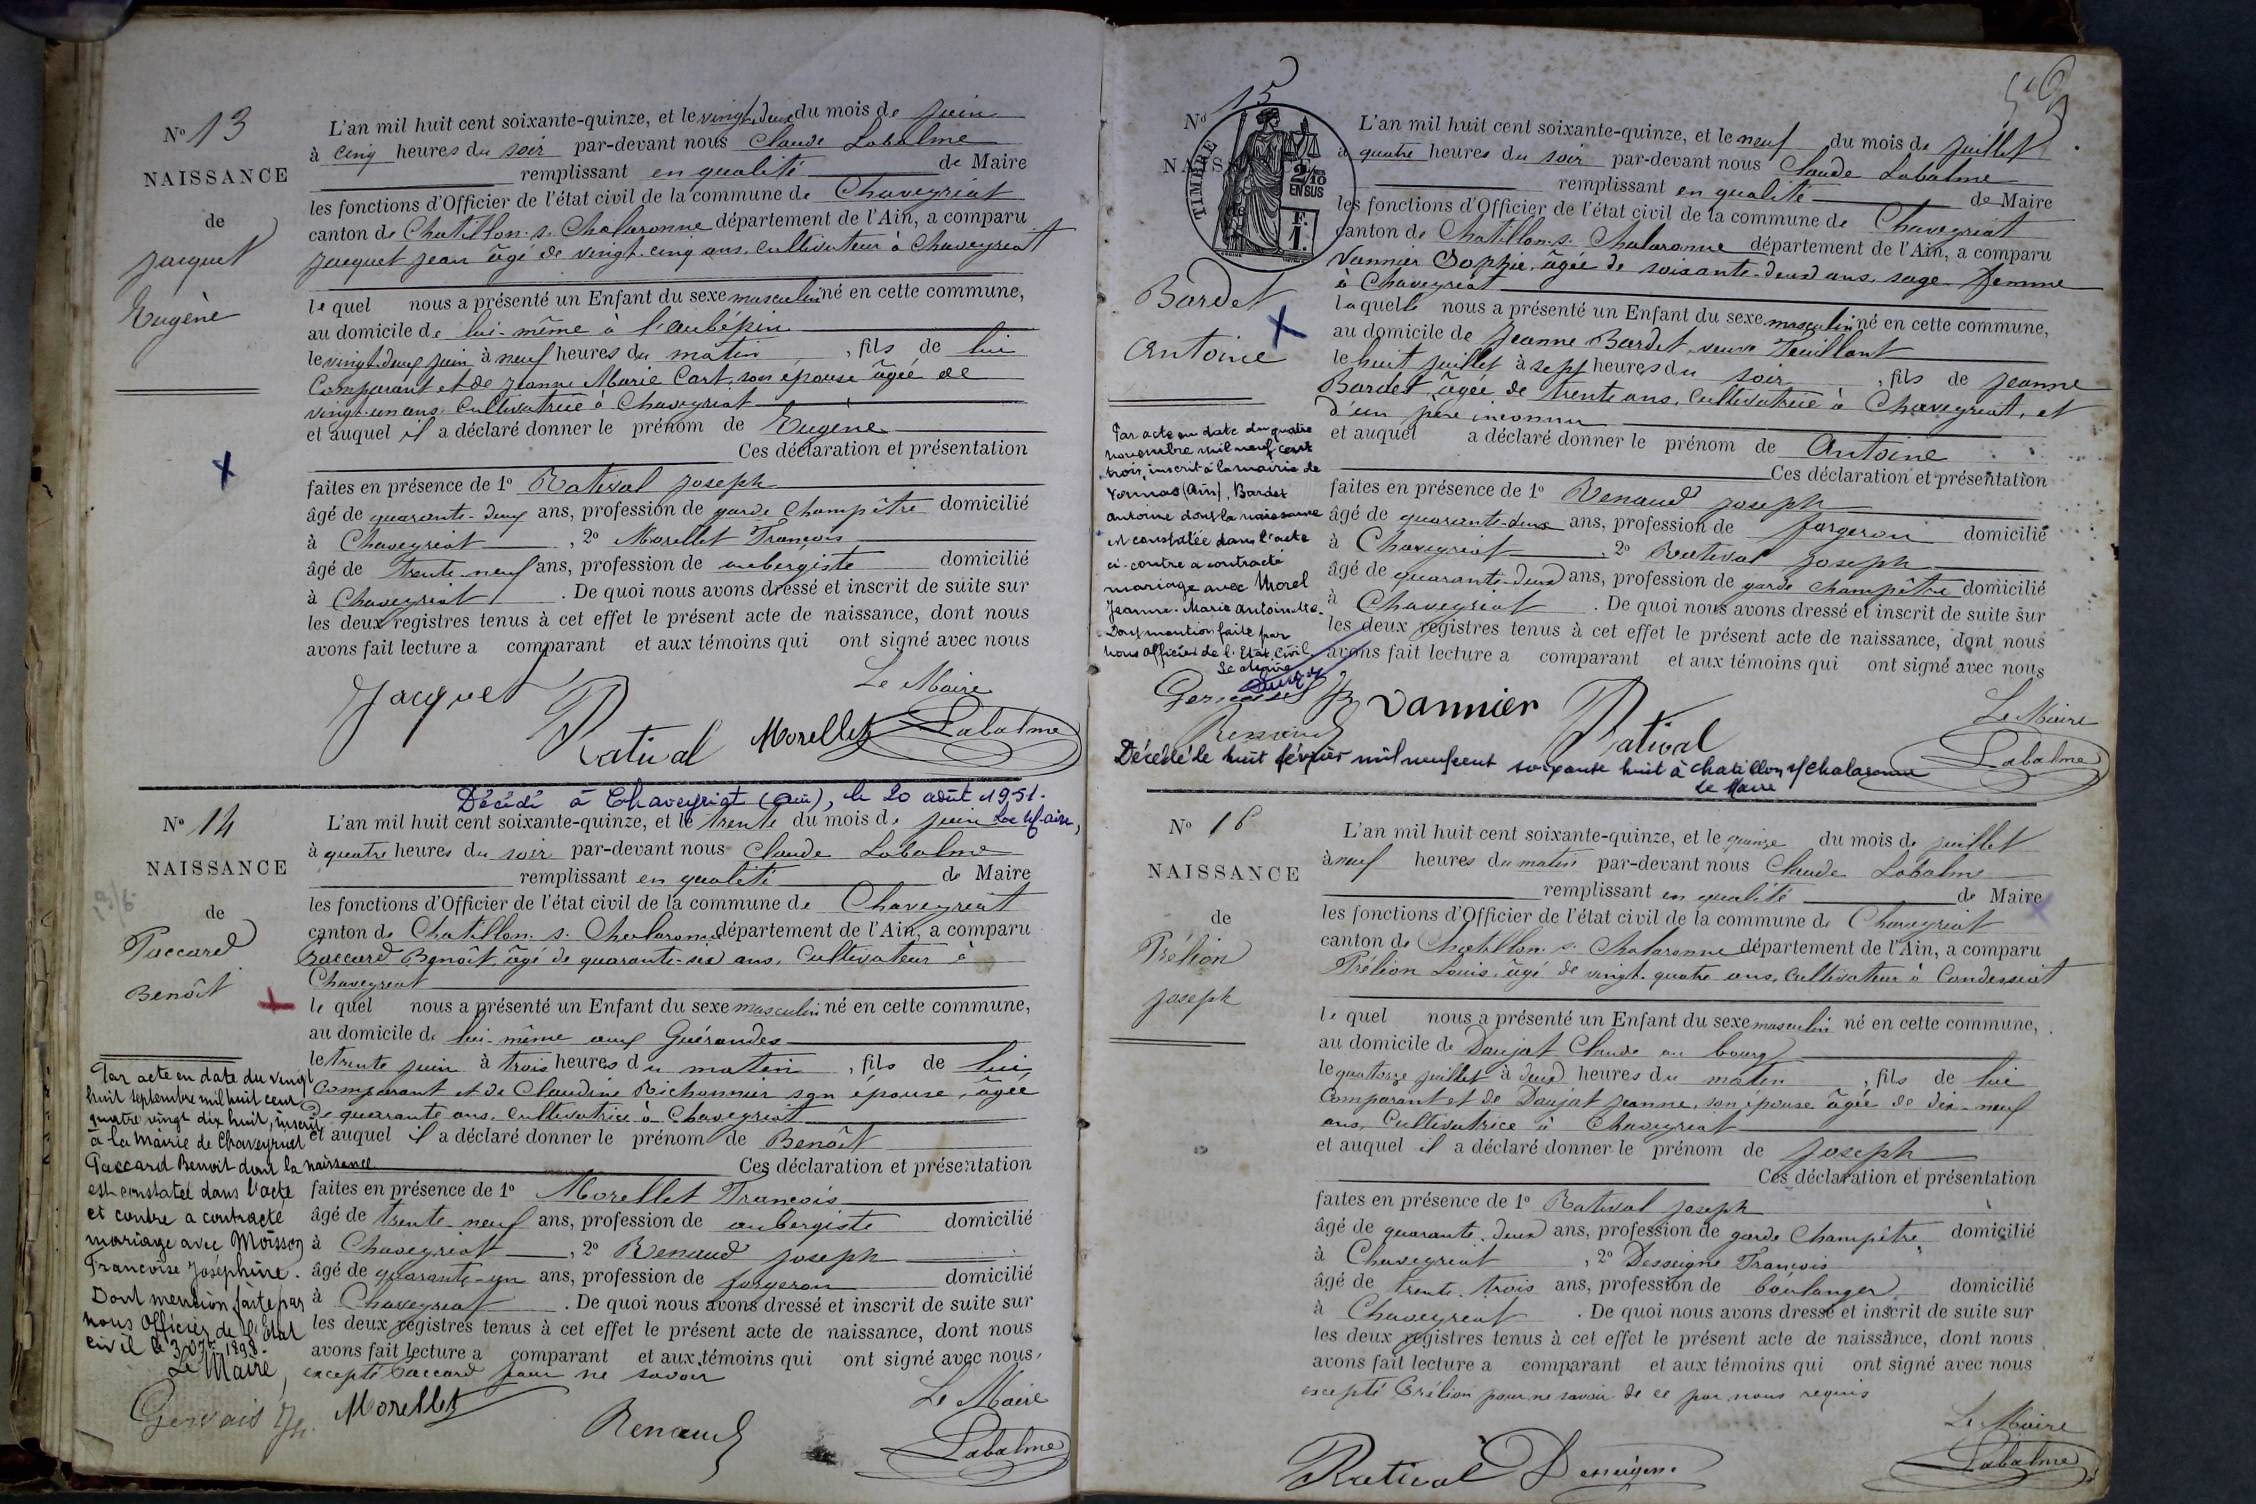 N° 13
NAISSANCE
de
Jacquet
Eugène
L'an mil huit cent soixante-quinze, et le vingt-deux du mois de juin
à cinq heures du soir par-devant nous Claude Labalme
remplissant en qualité de Maire
les fonctions d'Officier de l'état civil de la commune de Chaveyriat
canton de Chatillon-s-Chalaronne département de l'Ain, a comparu
Jacquet Jean âgé de vingt-cinq ans, cultivateur à Chaveyriat
lequel nous a présenté un Enfant du sexe masculin né en cette commune,
au domicile de lui-même à l'aubépin
le vingt-deux juin à neuf heures du matin, fils de lui
Comparant et de Jeanne Marie Cart, son épouse âgée de
vingt-un ans, Cultivatrice à Chaveyriat
et auquel il a déclaré donner le prénom de Eugène
Ces déclaration et présentation
faites en présence de 1° Ratival Joseph
âgé de quarante-deux ans, profession de garde Champêtre domicilié
à Chaveyriat, 2° Morellet François
âgé de trente-neuf ans, profession de aubergiste domicilié
à Chaveyriat. De quoi nous avons dressé et inscrit de suite sur
les deux registres tenus à cet effet le présent acte de naissance, dont nous
avons fait lecture a comparant et aux témoins qui ont signé avec nous
Le Maire
Jacquet Ratival Morellet Labalme
Décédé à Chaveyriat (Ain), le 20 août 1951.
Le Maire,
N° 14
NAISSANCE
de
Paccard
Benoît
L'an mil huit cent soixante-quinze, et le trente du mois de juin
à quatre heures du soir par-devant nous Claude Labalme
remplissant en qualité de Maire
les fonctions d'Officier de l'état civil de la commune de Chaveyriat
canton de Chatillon-s-Chalaronne département de l'Ain, a comparu
Paccard Benoît, âgé de quarante-six ans, Cultivateur à
Chaveyriat
lequel nous a présenté un Enfant du sexe masculin né en cette commune,
au domicile de lui-même aux Guérandes
le trente juin à trois heures du matin, fils de lui
Comparant et de Claudine Bichonnier son épouse, âgée
de quarante ans, Cultivatrice à Chaveyriat
et auquel il a déclaré donner le prénom de Benoît
Ces déclaration et présentation
faites en présence de 1° Morellet François
âgé de trente-neuf ans, profession de aubergiste domicilié
à Chaveyriat, 2° Renaud Joseph
âgé de quarante-un ans, profession de forgeron domicilié
à Chaveyriat. De quoi nous avons dressé et inscrit de suite sur
les deux registres tenus à cet effet le présent acte de naissance, dont nous
avons fait lecture a comparant et aux témoins qui ont signé avec nous,
excepté Paccard pour ne savoir
Le Maire
Morellet Renaud Labalme
Par acte en date du vingt
huit septembre mil huit cent
quatre vingt dix huit, inscrit
à la Mairie de Chaveyriat
Paccard Benoit dont la naissance
est constatée dans l'acte
ci contre a contracté
mariage avec Moisson
Francoise Joséphine.
Dont mention faite par
nous Officier de l'Etat
civil le 3 1898.
Le Maire,
Gervais
N° 15
NAISSANCE
de
TIMBRE
2/10
EN SUS
F.
1.
Bardet
Antoine
L'an mil huit cent soixante-quinze, et le neuf du mois de juillet
à quatre heures du soir par-devant nous Claude Labalme
remplissant en qualité de Maire
les fonctions d'Officier de l'état civil de la commune de Chaveyriat
canton de Chatillon-s-Chalaronne département de l'Ain, a comparu
Vannier Sophie, âgée de soixante-deux ans, sage-femme
à Chaveyriat
laquelle nous a présenté un Enfant du sexe masculin né en cette commune,
au domicile de Jeanne Bardet veuve Feuillant
le huit juillet à sept heures du soir, fils de Jeanne
Bardet, âgée de trente ans, Cultivatrice à Chaveyriat, et
d'un père inconnu
et auquel a déclaré donner le prénom de Antoine
Ces déclaration et présentation
faites en présence de 1° Renaud Joseph
âgé de quarante-deux ans, profession de forgeron domicilié
à Chaveyriat, 2° Rativał Joseph
âgé de quarante-deux ans, profession de garde Champêtre domicilié
à Chaveyriat. De quoi nous avons dressé et inscrit de suite sur
les deux registres tenus à cet effet le présent acte de naissance, dont nous
avons fait lecture a comparant et aux témoins qui ont signé avec nous
Le Maire
Renaud Vannier Rativał Labalme
Par acte en date du quatre
novembre mil neuf cent
trois, inscrit à la mairie de
Vonnas (Ain), Bardet
Antoine dont la naissance
est constatée dans l'acte
ci-contre a contracté
mariage avec Morel
Jeanne-Marie Antoinette.
Dont mention faite par
nous Officier de l'Etat Civil.
Le Maire
Décédé le huit février mil neuf cent soixante huit à Chatillon s/Chalaronne
Le Maire
N° 16
NAISSANCE
de
Prélion
Joseph
L'an mil huit cent soixante-quinze, et le quinze du mois de juillet
à neuf heures du matin par-devant nous Claude Labalme
remplissant en qualité de Maire
les fonctions d'Officier de l'état civil de la commune de Chaveyriat
canton de Chatillon-s-Chalaronne département de l'Ain, a comparu
Prélion Louis, âgé de vingt-quatre ans, Cultivateur à Condessiat
lequel nous a présenté un Enfant du sexe masculin né en cette commune,
au domicile de Daujat Claude au bourg
le quatorze juillet à deux heures du matin, fils de lui
Comparant et de Daujat Jeanne, son épouse âgée de dix-neuf
ans, Cultivatrice à Chaveyriat
et auquel il a déclaré donner le prénom de Joseph
Ces déclaration et présentation
faites en présence de 1° Rativał Joseph
âgé de quarante-deux ans, profession de garde Champêtre domicilié
à Chaveyriat, 2° Desseigne François
âgé de trente-trois ans, profession de boulanger domicilié
à Chaveyriat. De quoi nous avons dressé et inscrit de suite sur
les deux registres tenus à cet effet le présent acte de naissance, dont nous
avons fait lecture a comparant et aux témoins qui ont signé avec nous
excepté Prélion pour ne savoir de ce par nous requis
Le Maire
Rativał Desseigne Labalme